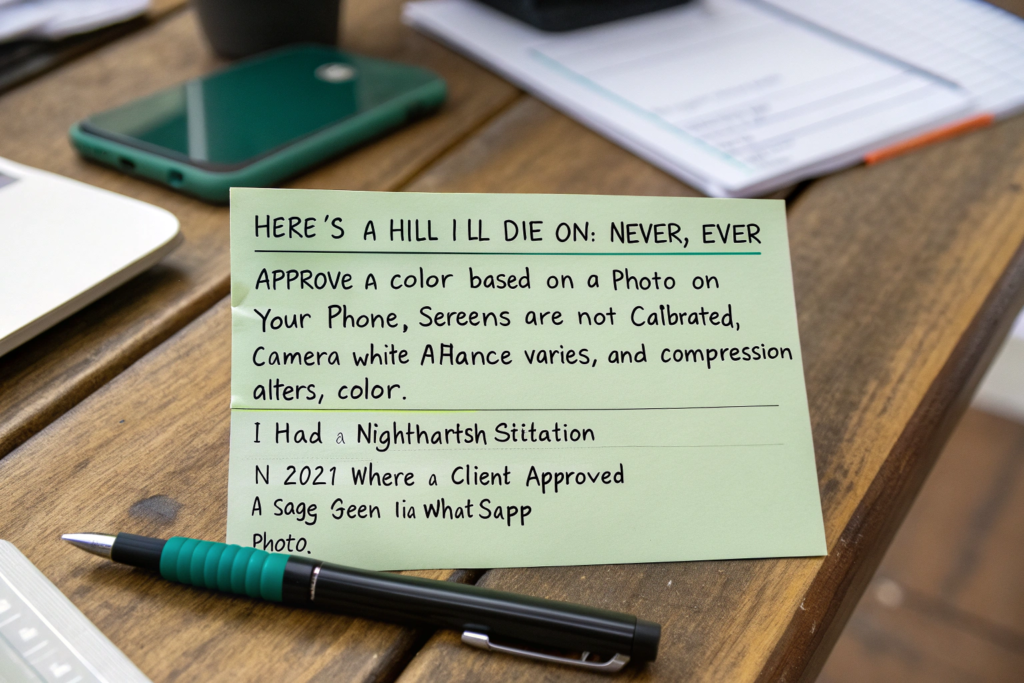 HERE'S A HILL I LL DIE ON: NEVER, EVER
APPROVE A color based on a Photo on
Your Phone, Sereens are not Calbrated,
Camera white varies, and compression
alters, color.
I Had a Nighthartsh Stitation
N 2021 Where a Client Approved
A Sagg Geen lia What Sapp
Photo.